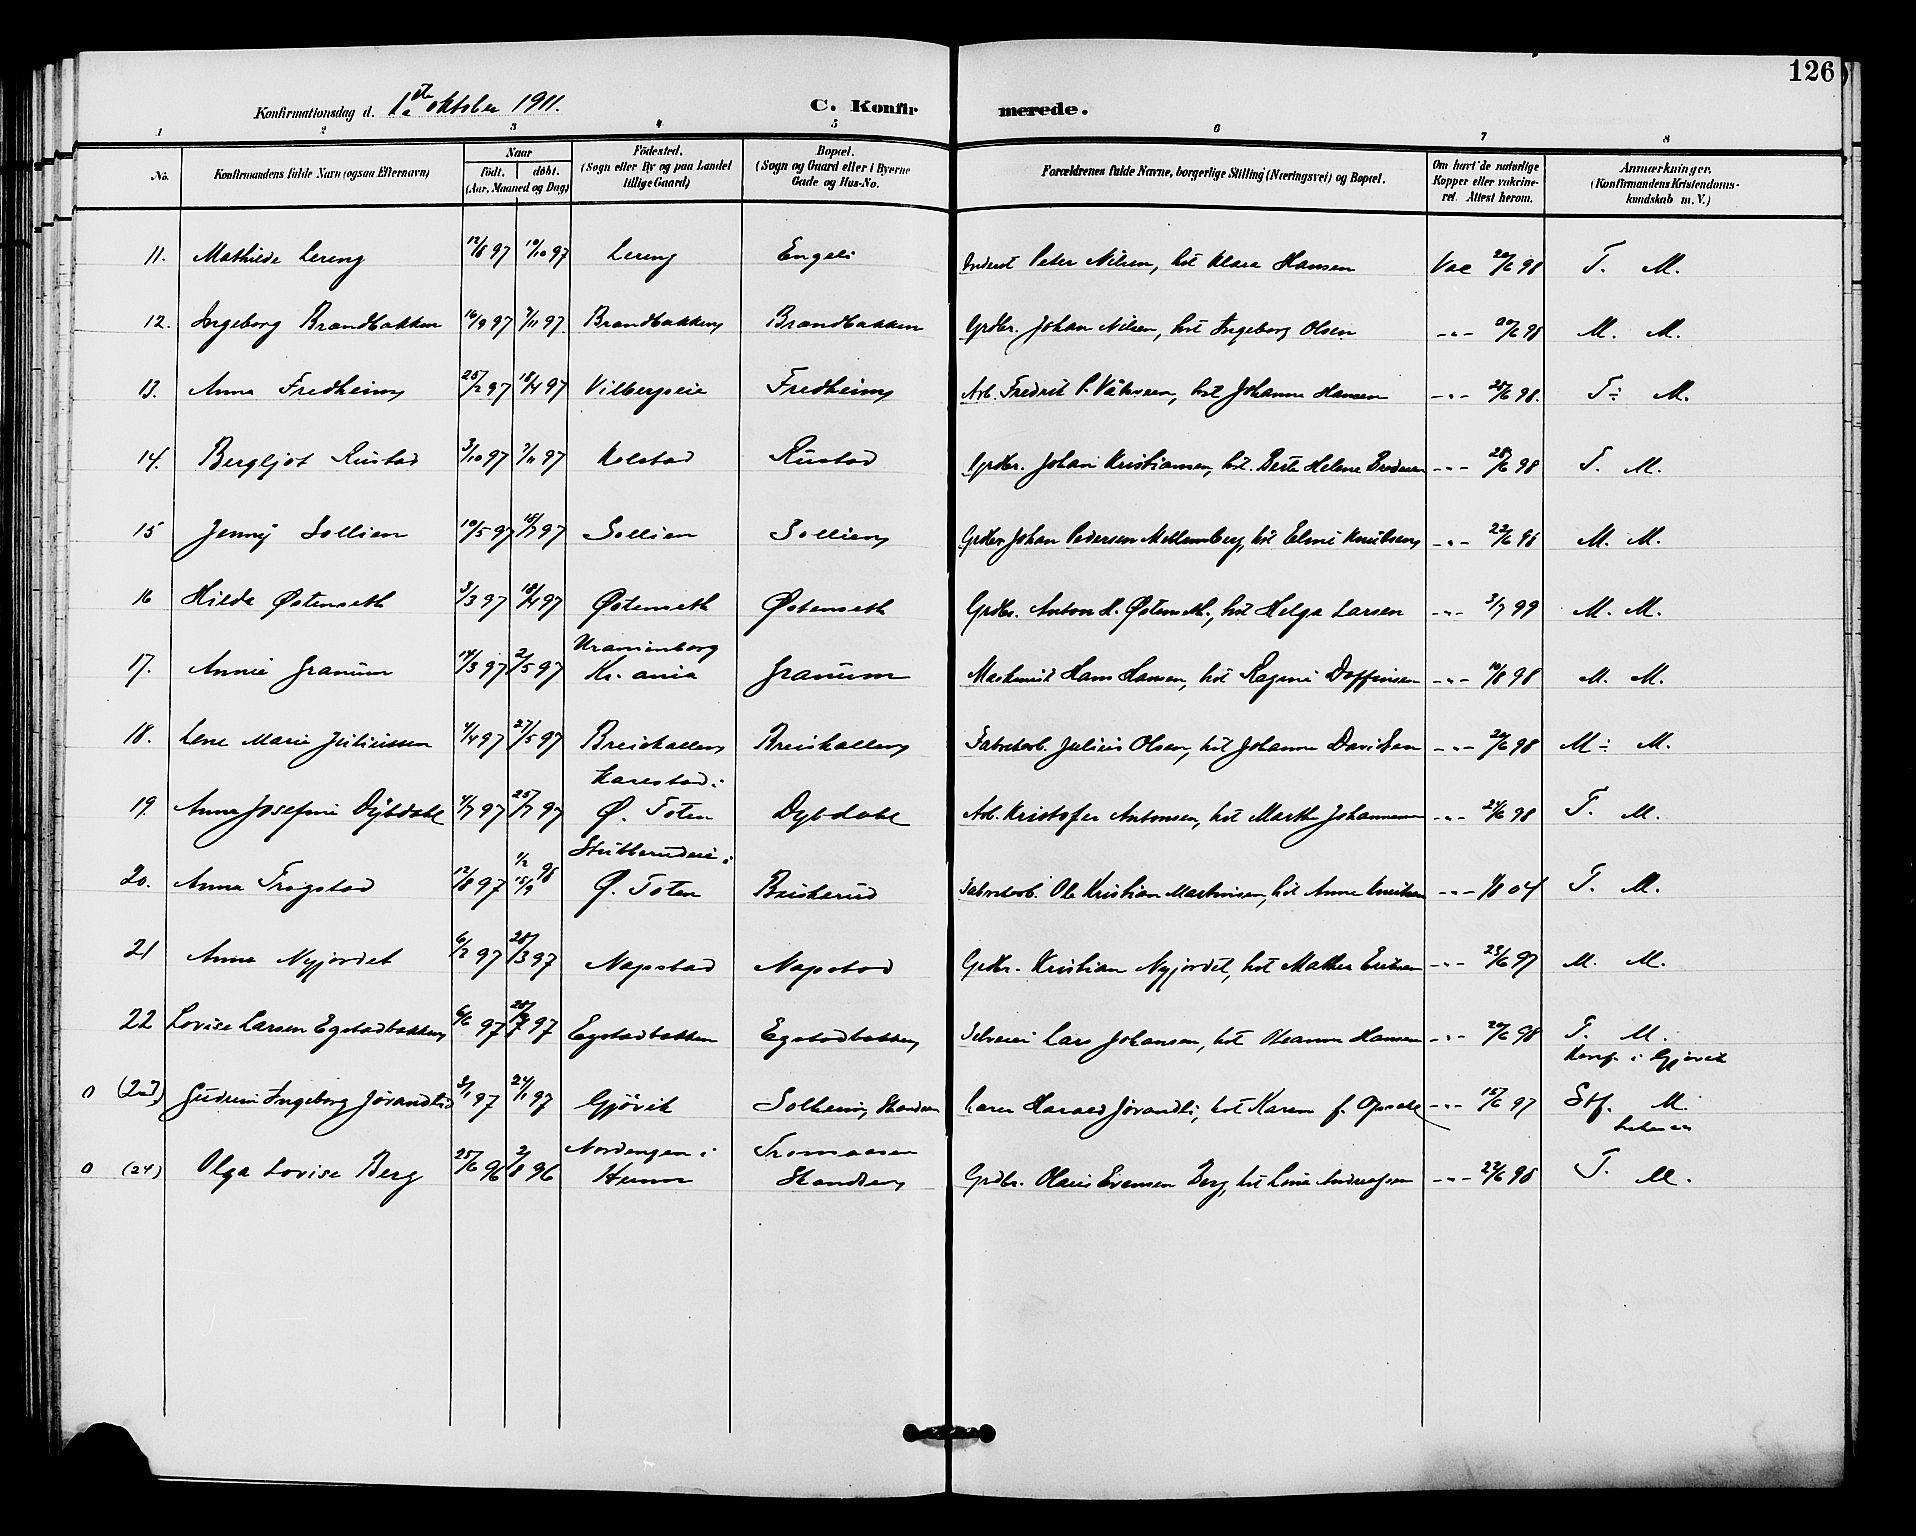 126
Konfirmationsdag d. 1ste oktober 1911. C. Konfirmerede.
1 2 3 4 5 6 7 8
No. Konfirmandens fulde Navn (ogsaa Efternavn) Naar født. døbt. (Aar, Maaned og Dag) Fødested. (Sogn eller By og paa Landet tillige Gaard) Bopæl. (Sogn og Gaard eller i Byerne Gade og Hus-No. Forældrenes fulde Navne, borgerlige Stilling (Næringsvei) og Bopæl. Om havt de naturlige Kopper eller vakcineret. Attest herom. Anmærkninger. (Konfirmandens Kristendomskundskab m. V.)
11. Mathilde Lereng 12/8 97 10/10 97 Lereng Engeli Peter Nilsen, hst Klara Hansen Vac 20/6 98 T. M.
12. Ingeborg Brandbakken 16/9 97 7/11 97 Brandbakken Brandbakken Grdbr. Johan Nilsen, hst Ingeborg Olsen -"- 20/6 98 M. M.
13. Anna Fredheim 25/2 97 18/4 97 Vilbergseie Fredheim Arb. Fredrik hst Johanne Hansen -"- 25/6 98. T÷ M.
14. Bergljot Rustad 3/10 97 7/11 97 Kolstad Rustad Grdbr. Johan Kristiansen, hst. Berte Helene -"- 28/6 98 T. M.
15 Jenny Sollien 10/5 97 18/7 97 Sollien Sollien Grdbr Johan Pedersen hst Eline Knutsen -"- 22/6 98 M. M.
16 Hilda Østenseth 3/3 97 18/4 97 Østenseth Østenseth Grdbr. Anton H. Østenseth, hst Helga Larsen -"- 3/7 99 M. M.
17. Annie Granum 14/3 97 2/5 97 Uranienborg Kr.ania Granum Maskinist Hans Hansen, hst Ragna -"- 10/8 98 M. M.
18. Lene Marie Juliussen 4/4 97 27/5 97 Breiskallen Breiskallen Fabrikarb. Julius Olsen, hst Johanne Davidsen -"- 24/6 98 M÷ M.
19. Anna Josefine Dybdahl 4/7 97 25/7 97 Karestad i Ø. Toten Dybdahl Arb. Kristofer Antonsen, hst Marthe Johannesen -"- 24/6 98 T. M.
20. Anna Trøgstad 12/8 97 1/2 98 15/9 Stubberudeie i Ø. Toten Briskerud Fabrikarb. Ole Kristian Martinsen, hst Anne Knutsen -"- 1/8 04 T. M.
21 Anna Nyjordet 6/2 97 28/3 97 Napstad Napstad Grdbr. Kristian Nyjordet, hst Mathea Eriksen -"- 23/6 97 M. M.
22 Lovise Larsen Egstadbakken 6/6 97 25/7 97 Egstadbakken Egstadbakken Selveier Lars Johansen, hst Oleanna Hansen -"- 20/6 98 T. M.
0 (23) Gudrun Ingeborg Jørandli 2/1 97 24/1 97 Gjøvik Solheim, Skandsen Lærer Harald Jørandli, hst Karen f. Opsahl -"- 15/6 97 Konf. i Gjøvik Stf. M.
0 (24) Olga Lovise Berg 25/6 96 2/8 96 Nordengen i Hunn Tromaasen Skandsen Grdbr. Olaus Evensen Berg, hst Lina Andreassen -"- 22/6 98 T. M.